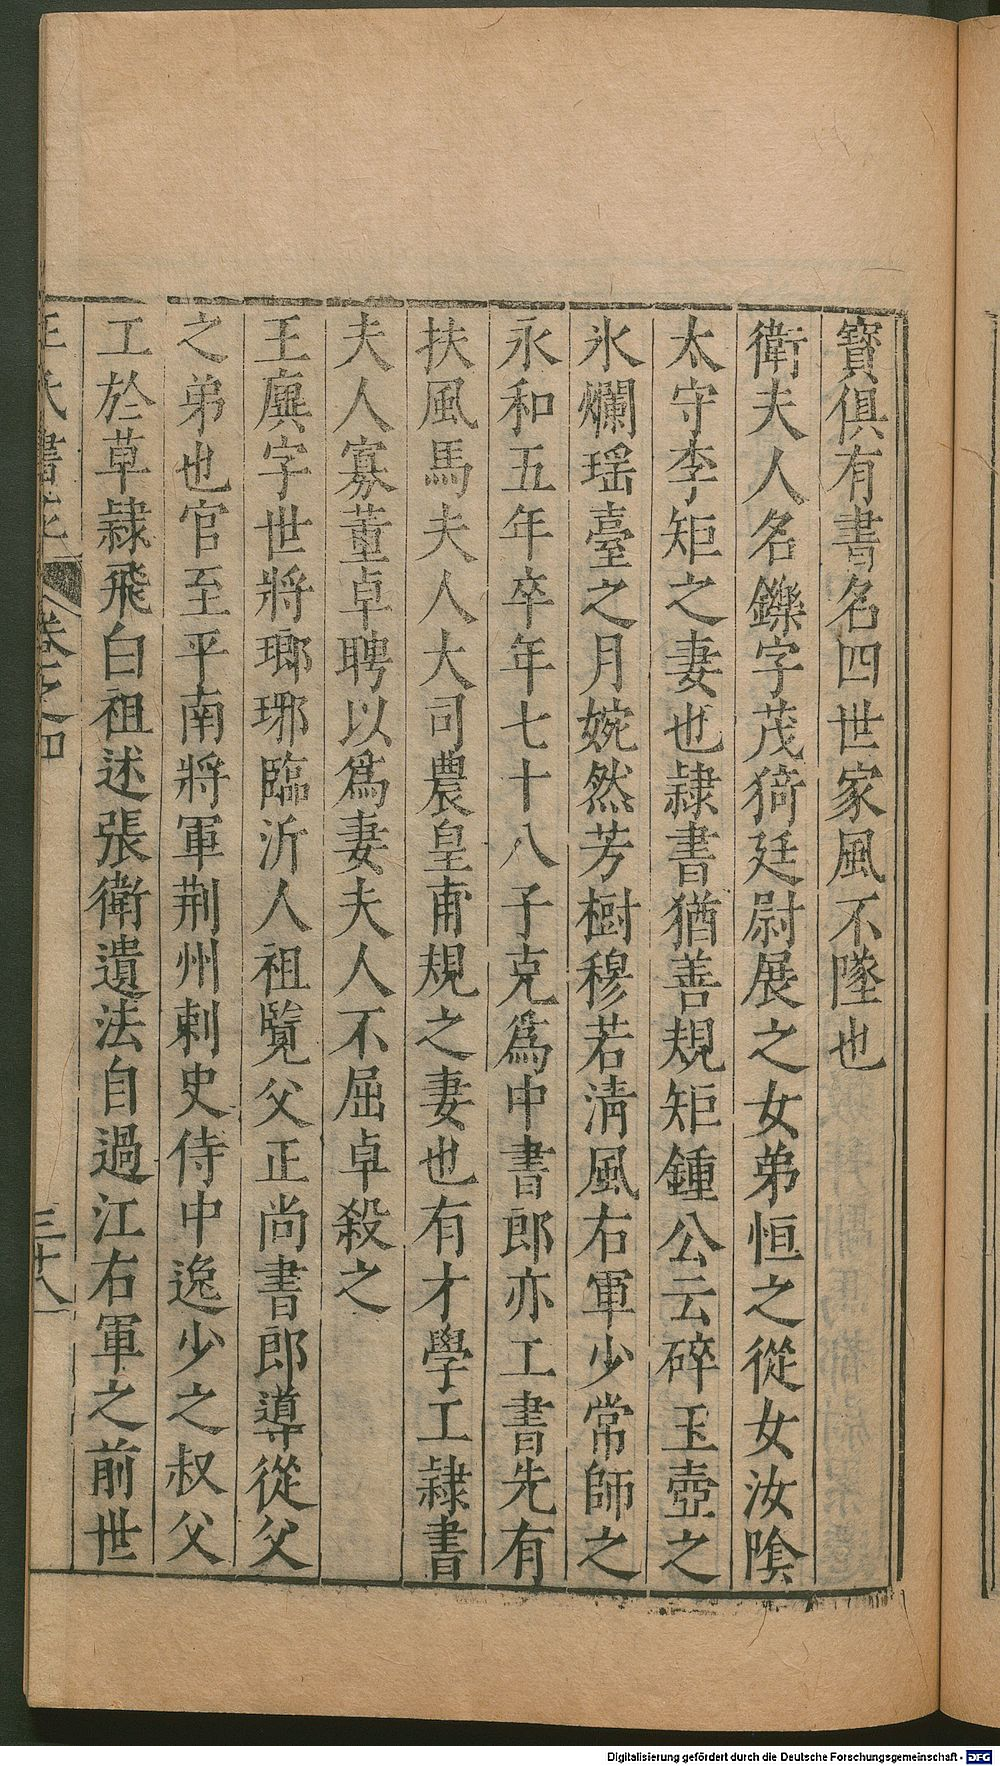 寳俱有書名四世家風不墜也
衛夫人名鑠字茂猗廷尉展之女弟恒之從女汝陰
太守李矩之妻也隷書猶善規矩鍾公云碎玉壺之
氷爛瑶臺之月婉然芳樹穆若清風右軍少常師之
永和五年卒年七十八子克爲中書郎亦工書先有
扶風馬夫人大司農皇甫規之妻也有才學工隷書
夫人寡董卓聘以爲妻夫人不屈卓殺之
王廙字世將瑯琊臨沂人祖覽父正尚書郎導從父
之弟也官至平南將軍荆州刺史侍中逸少之叔父
工於草隷飛白祖述張衛遺法自過江右軍之前世
王氏書苑 卷之四 三十八
Digitalisierung gefördert durch die Deutsche Forschungsgemeinschaft - DFG